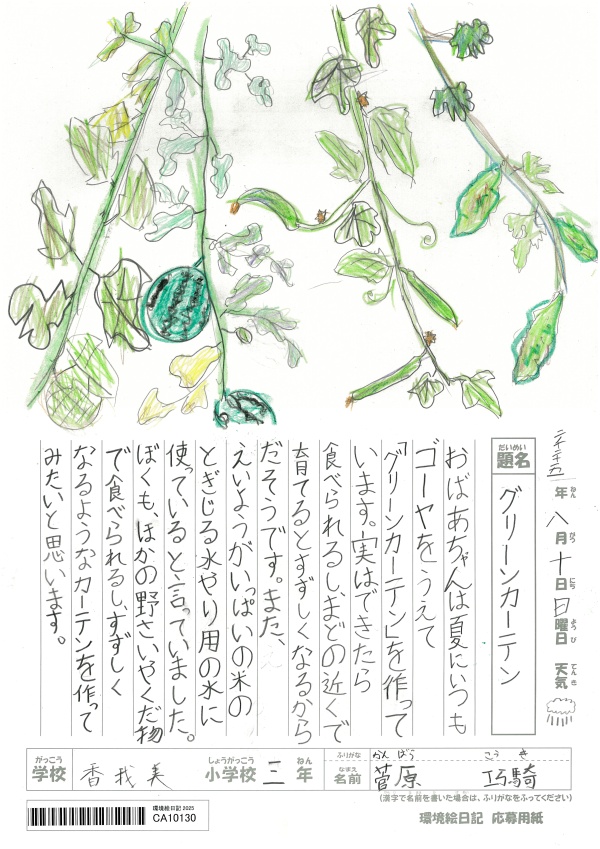 二千二十五年八月十日日曜日 天気
ねん がつ にち ようび てんき
だいめい
題名 グリーンカーテン
おばあちゃんは夏にいつも
ゴーヤをうえて
「グリーンカーテン」を作って
います。実はできたら
食べられるし、まどの近くで
育てるとすずしくなるから
だそうです。また、
えいようがいっぱいの米の
とぎじる水やり用の水に
使っていると言っていました。
ぼくも、ほかの野さいやくだ物
で食べられるし、すずしく
なるようなカーテンを作って
みたいと思います。
がっこう しょうがっこう ねん ふりがな
学校 香我美 小学校 三年
なまえ
名前 菅原 巧騎
かんばら こうき
(漢字で名前を書いた場合は、ふりがなをふってください)
環境絵日記 2025
CA10130
環境絵日記 応募用紙